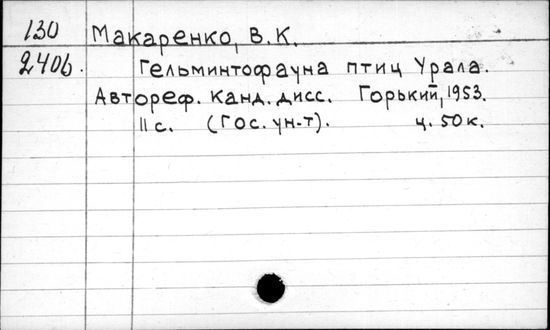 130 Макаренко, В.К.
240b. Гельминтофауна птиц Урала.
Автореф. канд. дисс. Горький, 1953.
11 с. (Гос. ун-т). ц. 50 к.